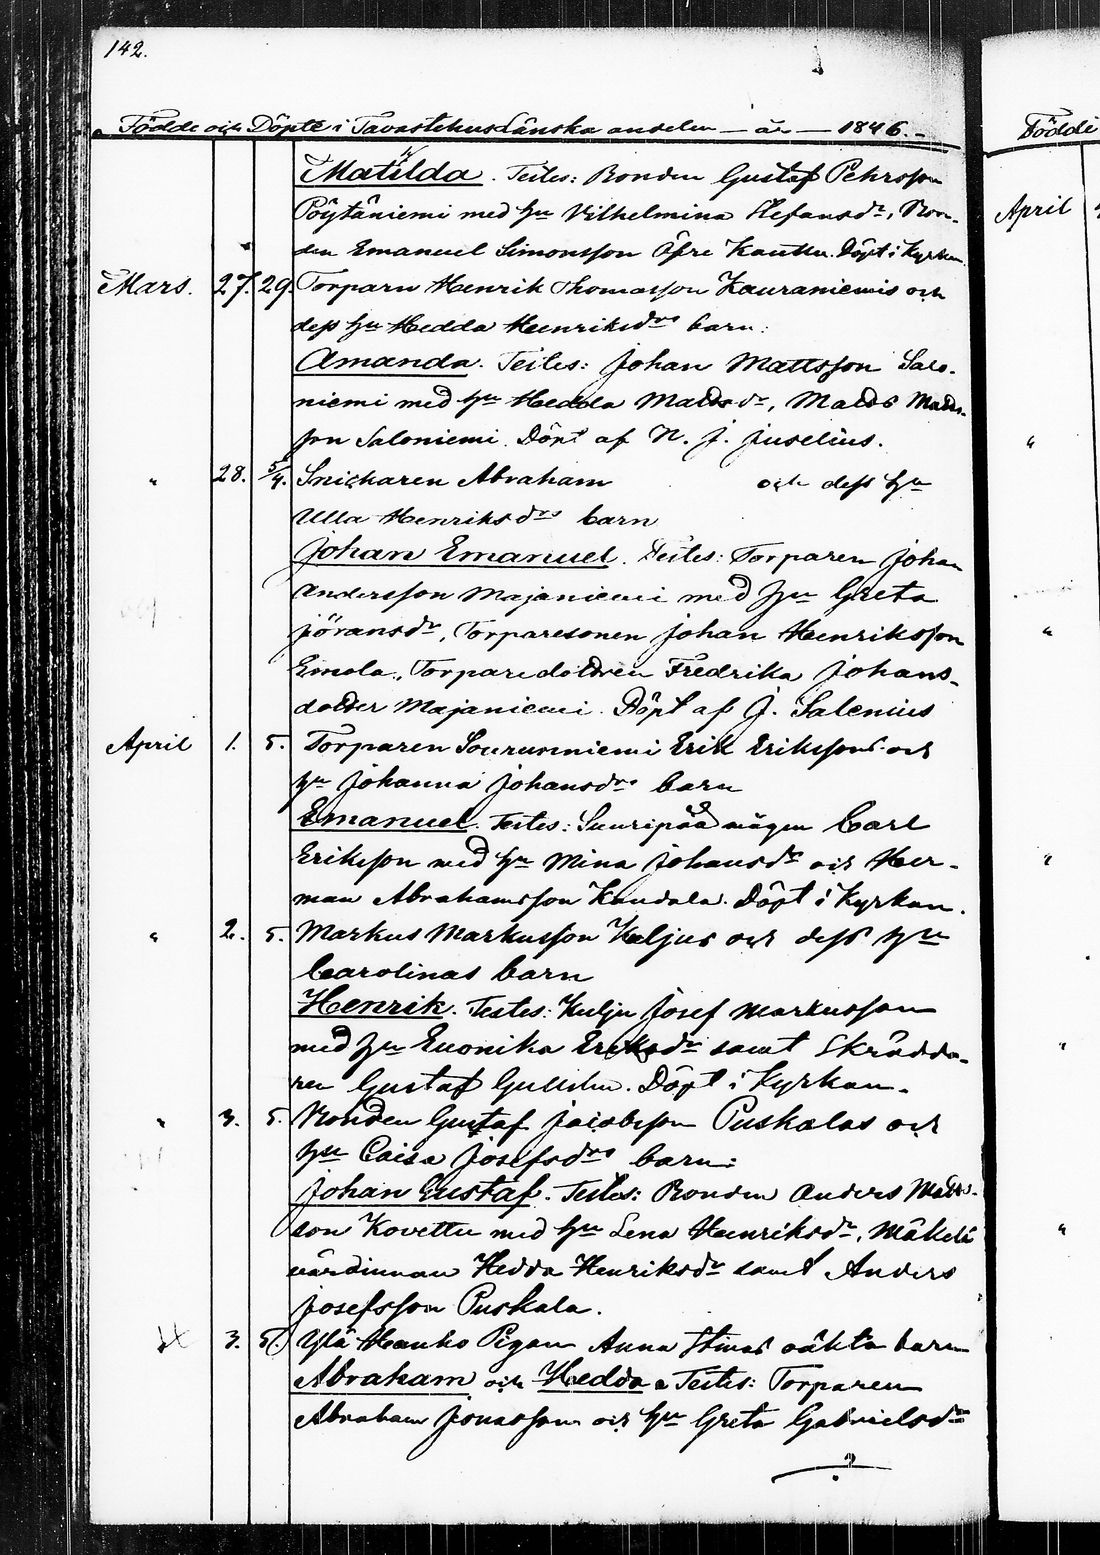 142.
Födde och Döpte i Tavastehus Länska andelen — år — 1846. —
Födde
Matilda. Testes: Bonden Gustaf Pehrsson
Pöytäniemi med hu Vilhelmina Stefansdr, Bon-
den Emanuel Simonsson Öfre Kauttu. Döpt i Kyrkan.
April
Mars. 27. 29. Torparn Henrik Thomasson Kauraniemis och
dess hu Hedda Henriksdrs barn:
Amanda. Testes: Johan Mattsson Salo-
niemi med hu Hedda Matsdr, Matts Matts-
son Saloniemi. Döpt af N. J. Juselius.
" 28. 5/4. Snickaren Abraham och dess hu
Ulla Henriksdrs barn
Johan Emanuel. Testes: Torparen Johan
Andersson Majaniemi med hu Greta
Jöransdr, Torparesonen Johan Henriksson
Emola, Torparedottren Fredrika Johans-
dotter Majaniemi. Döpt af J. Salenius
April 1. 5. Torparen Souruniemi Erik Erikssons och
hu Johanna Johansdrs barn
Emanuel. Testes: Suuripää mågen Carl
Eriksson med hu Mina Johansdr och Her-
man Abrahamsson Kaudala. Döpt i Kyrkan.
" 2. 5. Markus Markusson Kuljus och dess hu
Carolinas barn
Henrik. Testes: Kulju Josef Markusson
med hu Euonika Eriksdr samt Skrädda-
ren Gustaf Gullsten. Döpt i Kyrkan.
" 3. 5. Bonden Gustaf Jacobsson Puskalas och
hu Caisa Josefsdrs barn:
Johan Gustaf. Testes: Bonden Anders Matts-
son Kovettu med hu Lena Henriksdr, Mäkelä
värdinnan Hedda Henriksdr samt Anders
Josefsson Puskala.
3. 5. Ylä Hanko Pigan Anna Stinas oäkta barn
Abraham och Hedda. Testes: Torparen
Abraham Jonasson och hu Greta Gabrielsdr